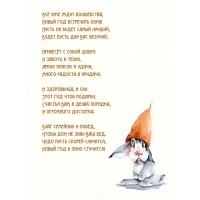 Все уже ждут волшебства,
Новый год встречать пора
Пусть он будет самый лучший,
Будет пусть для вас везучий.
Принесёт с собой добро
И заботу, и тепло,
Ярких красок и удачи,
Много радости в придачу.
И здоровья, и сил
Этот год чтоб подарил
Счастья вам, в делах порядка,
И огромного достатка.
Благ семейных и побед,
Чтобы дом не знал ваш бед,
Чудо пусть скорей случится,
Новый год в окно стучится!